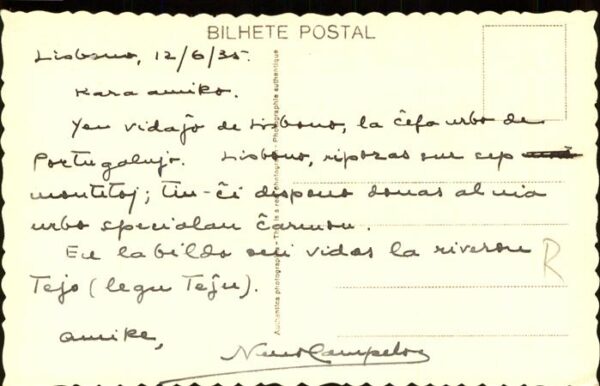 BILHETE POSTAL
Lisbono, 12/6/35.
Kara amiko.
Yen vidaĵo de Lisbono, la ĉefa urbo de
Portugalujo. Lisbono, ripozas sur sep
montetoj; tiu-ĉi dispono donas al nia
urbo specialan ĉarmon.
En la bildo oni vidas la riveron
Tejo (legu Teĵu).
Amike,
Nuno Campelos
R
Authentica photographia - This is a real photograph - Photographie authentique